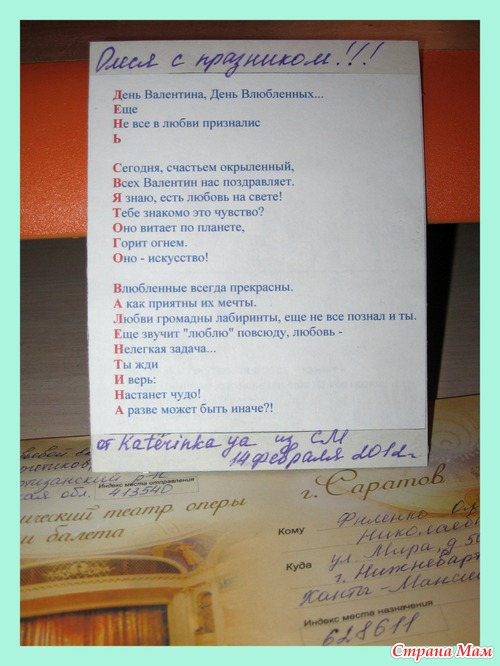 Олеся с празником!!!
День Валентина, День Влюбленных...
Еще
Не все в любви призналис
Ь
Сегодня, счастьем окрыленный,
Всех Валентин нас поздравляет.
Я знаю, есть любовь на свете!
Тебе знакомо это чувство?
Оно витает по планете,
Горит огнем.
Оно - искусство!
Влюбленные всегда прекрасны.
А как приятны их мечты.
Любви громадны лабиринты, еще не все познал и ты.
Еще звучит "люблю" повсюду, любовь -
Нелегкая задача...
Ты жди
И верь:
Настанет чудо!
А разве может быть иначе?!
от Katёrinka ya из СМ
14 февраля 2012г
обл. 413540
Индекс места отправления
ический театр оперы
и балета
г.Саратов
Кому Филенко
Николаев
Куда ул. Мира, д 50
г. Нижневарт
Ханты-Манси
Индекс места назначения
628611
Страна Мам